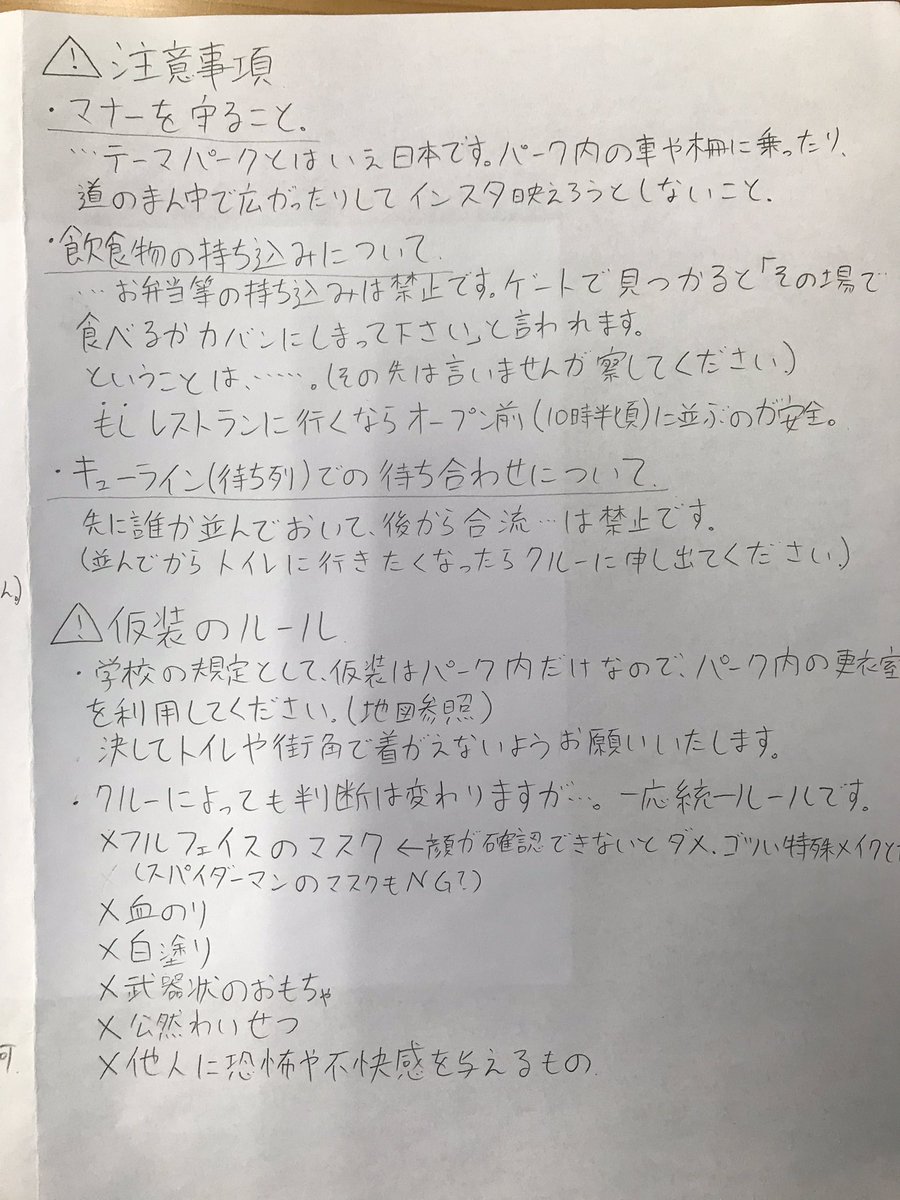 ⚠ 注意事項
・マナーを守ること.
…テーマパークとはいえ日本です。パーク内の車や柵に乗ったり、
道のまん中で広がったりしてインスタ映えろうとしないこと.
・飲食物の持ち込みについて.
…お弁当等の持ち込みは禁止です。ゲートで見つかると「その場で
食べるかカバンにしまって下さい」と言われます。
ということは、……。(その先は言いませんが察してください.)
もしレストランに行くならオープン前(10時半頃)に並ぶのが安全。
・キューライン(待ち列)での待ち合わせについて.
先に誰か並んでおいて、後から合流…は禁止です。
(並んでからトイレに行きたくなったらクルーに申し出てください.)
ん。)
⚠ 仮装のルール
・学校の規定として、仮装はパーク内だけなので、パーク内の更衣室
を利用してください.(地図参照)
決してトイレや街角で着がえないようお願いいたします。
・クルーによっても判断は変わりますが…。一応統一ルールです。
×フルフェイスのマスク ←顔が確認できないとダメ、ゴツい特殊メイクと
(スパイダーマンのマスクもNG?)
×血のり
×白塗り
×武器状のおもちゃ
×公然わいせつ
×他人に恐怖や不快感を与えるもの
可.